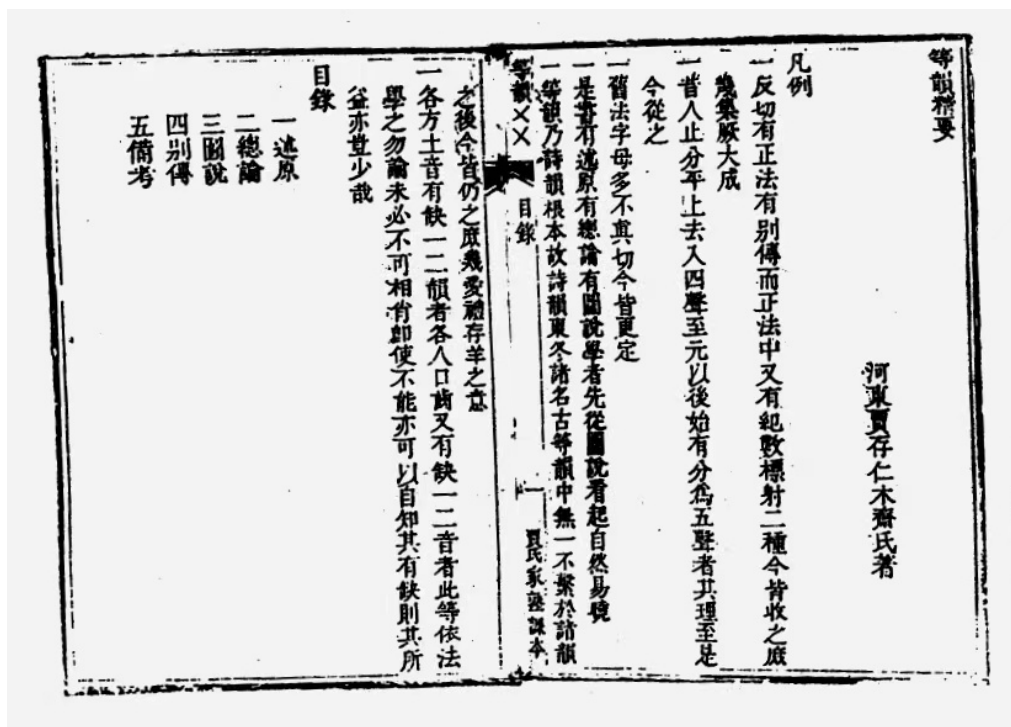 等韻精要
河東賈存仁木齋氏著
凡例
一反切有正法有別傳而正法中又有紀數標射二種今皆收之庶
幾集厥大成
一昔人止分平上去入四聲至元以後始有分爲五聲者其理至是
今從之
一舊法字母多不眞切今皆更定
一是書有述原有總論有圖說學者先從圖說看起自然易曉
一等韻乃詩韻根本故詩韻東冬諸名古等韻中無一不繫於諸韻
等韻
目錄
一
賈氏家塾課本
之後今皆仍之庶幾愛禮存羊之意
一各方土音有缺一二韻者各人口齒又有缺一二音者此等依法
學之勿論未必不可相肖卽使不能亦可以自知其有缺則其所
益亦豈少哉
目錄
一述原
二總論
三圖說
四別傳
五備考